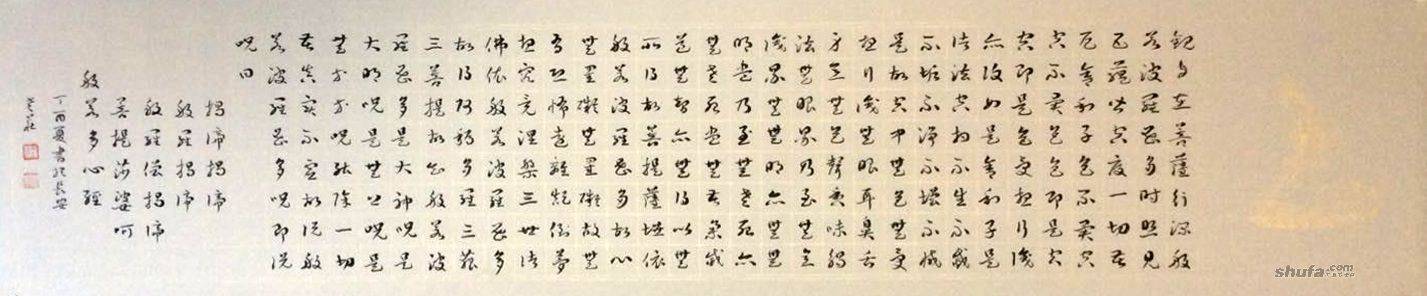 観自在菩薩行深般
若波羅蜜多時照見
五蘊皆空度一切苦
厄舍利子色不異空
空不異色色即是空
空即是色受想行識
亦復如是舍利子是
諸法空相不生不滅
不垢不淨不增不減
是故空中無色無受
想行識無眼耳鼻舌
身意無色聲香味觸
法無眼界乃至無意
識界無無明亦無無
明盡乃至無老死亦
無老死盡無苦集滅
道無智亦無得以無
所得故菩提薩埵依
般若波羅蜜多故心
無罣礙無罣礙故無
有恐怖遠離顛倒夢
想究竟涅槃三世諸
佛依般若波羅蜜多
故得阿耨多羅三藐
三菩提故知般若波
羅蜜多是大神呪是
大明呪是無上呪是
無等等呪能除一切
苦真實不虛故說般
若波羅蜜多呪即說
呪曰
揭諦揭諦
般羅揭諦
般羅僧揭諦
菩提莎婆呵
般若多心經
丁酉夏書於長安
shufa.com